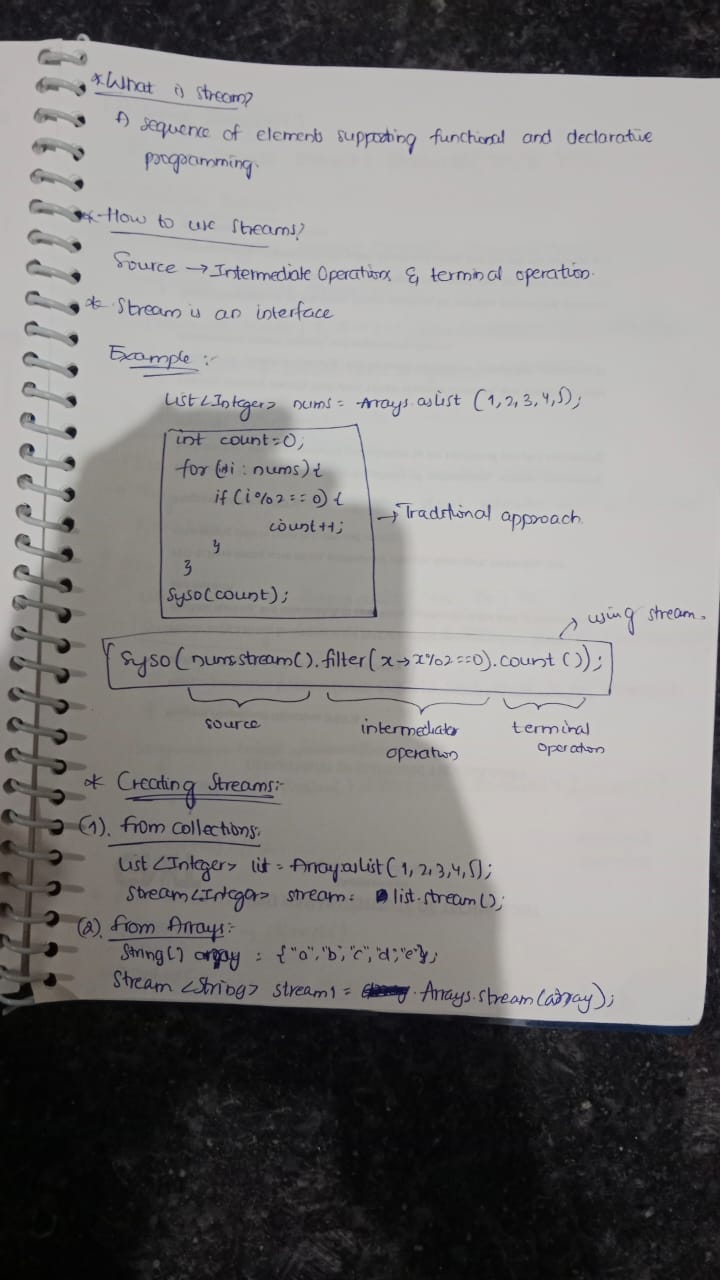 * What is stream?
A sequence of elements supporting functional and declarative
programming.
* How to use streams?
Source → Intermediate Operations & terminal operation.
* Stream is an interface
Example :-
List<Integer> nums = Arrays.asList (1,2,3,4,5);
int count=0;
for (int i : nums) {
if (i%2==0) {
count++;
}
}
Syso(count);
→ Traditional approach.
→ using stream.
Syso( nums.stream().filter(x→x%2==0).count());
source
intermediator operation
terminal operation
* Creating Streams:-
(1). from collections.
List <Integer> list = Array.asList (1,2,3,4,5);
Stream<Integer> stream = list.stream();
(2). from Arrays:-
String[] array = {"a","b","c","d","e"};
Stream <String> stream1 = Arrays.stream(array);